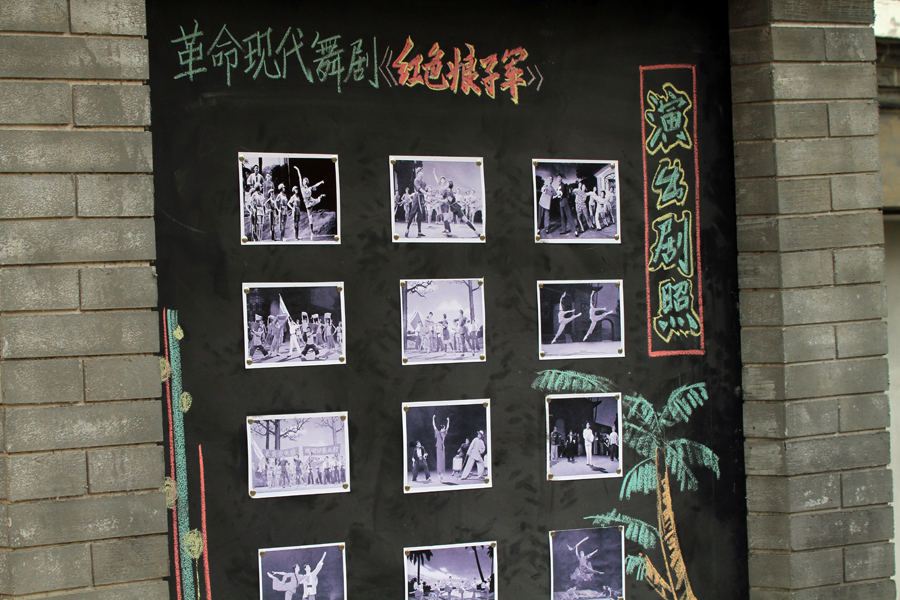 革命现代舞剧《红色娘子军》
演出剧照